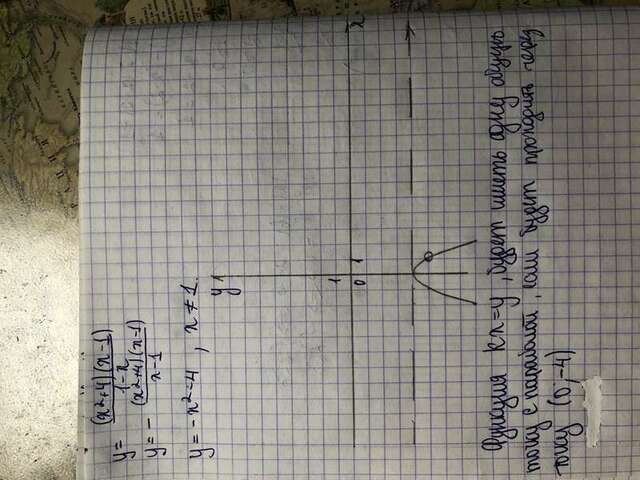 y = (x²+4)(x-1) / 1-x
y = - (x²+4)(x-1) / x-1
y = -x²-4 , x ≠ 1.
y
1
0 1 x
Функция kx=y, будет иметь одну общую
точку с параболой, если будет проходить через
точку (0;-4)